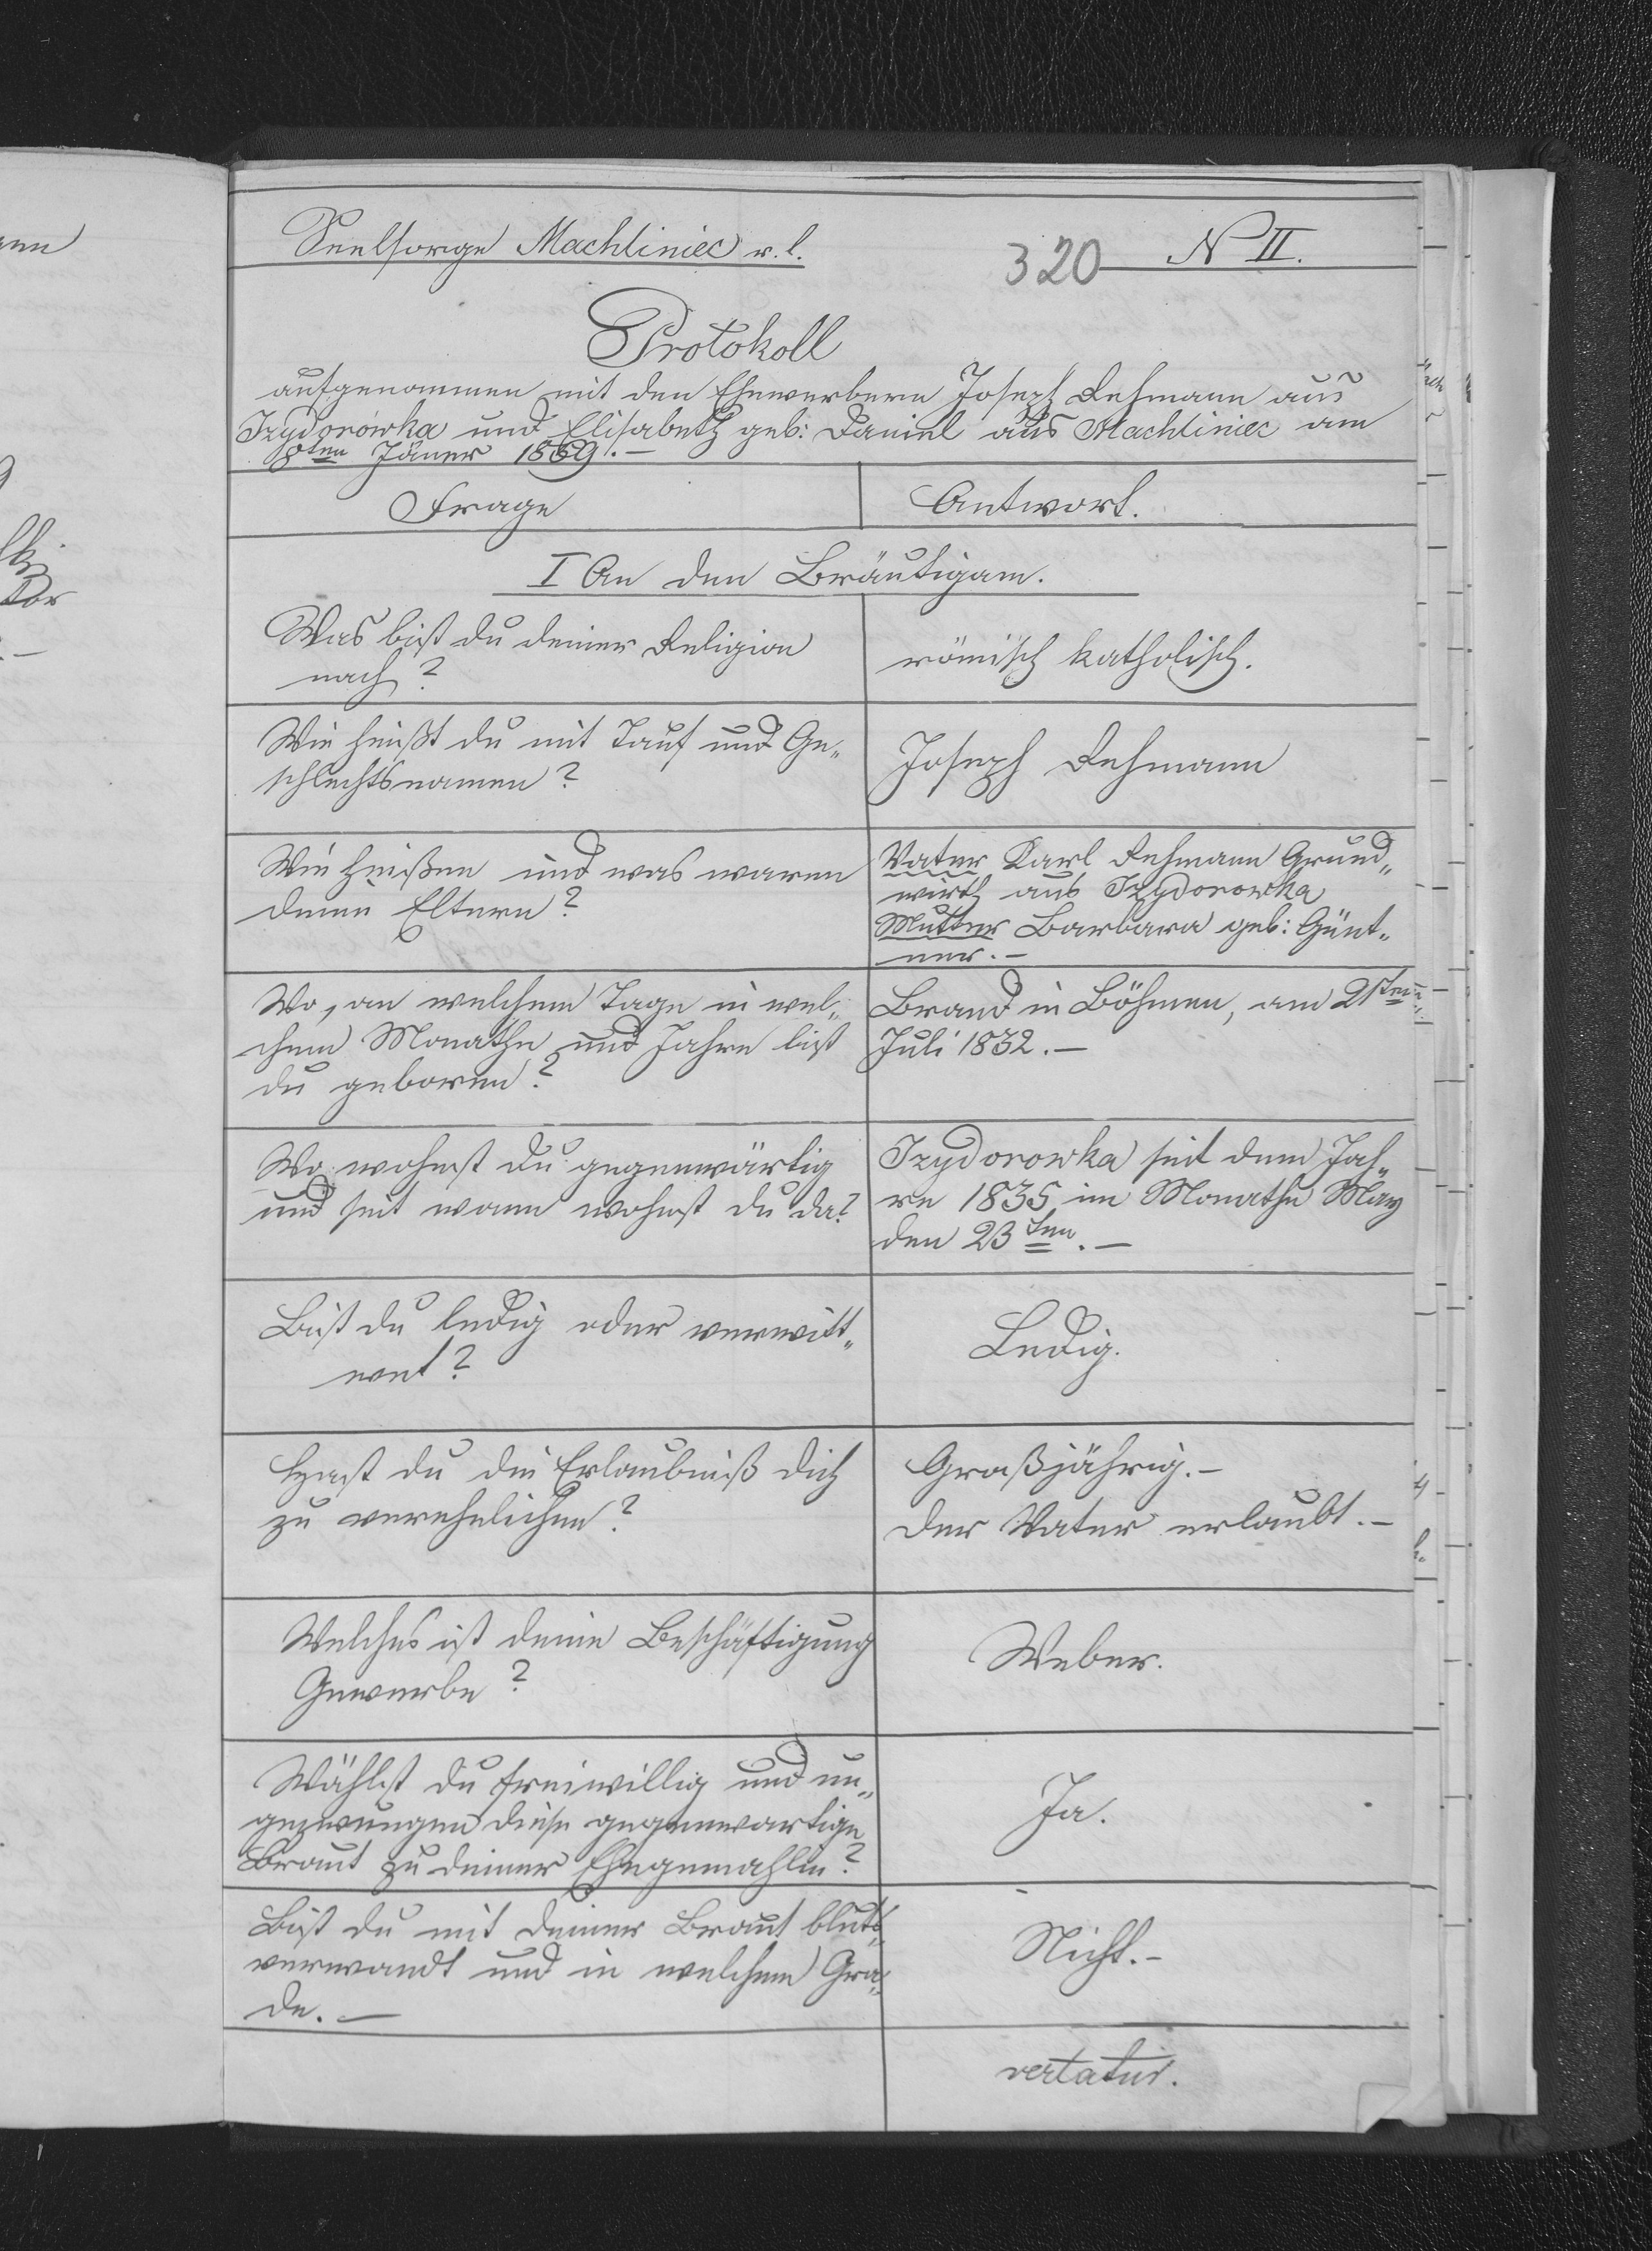 Seelsorge Machliniec r. l.
320 N II.
Protokoll
aufgenommen mit den Ehewerbern Joseph Rehmann aus
Izydorówka und Elisabeth geb: Daniel aus Machliniec am
8ten Jäner 1859.—
Frage
Antwort.
I An den Bräutigam.
Was bist du deiner Religion
nach?
römisch katholisch.
Wie heißt du mit Tauf und Ge„
schlechtsnamen?
Joseph Rehmann
Wie heißen und was waren
deine Eltern?
Vater Karl Rehmann Grund„
wirth aus Izydorowka
Mutter Barbara geb: Günt„
ner.—
Wo, an welchem Tage in wel„
chem Monathe und Jahre bist
du geboren?
Brand in Böhmen, am 21ten
Juli 1832.—
Wo wohnst du gegenwärtig
und seit wann wohnst du da?
Izydorowka seit dem Jah„
re 1835 im Monathe May
den 23ten.—
Bist du ledig oder verwitt„
wet?
Ledig.
Hast du die Erlaubniß dich
zu verehelichen?
Großjährig.—
der Vater erlaubt.—
Welches ist deine Beschäftigung
Gewerbe?
Weber.
Wählst du freiwillig und un„
gezwungen diese gegenwartige
Braut zu deiner Ehegemahlin?
Ja.
Bist du mit deiner Braut bluts„
verwandt und in welchem Gra„
de.—
Nicht.—
vertatur.